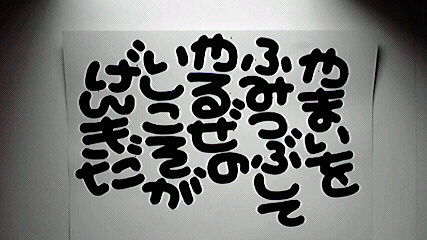 やまいを
ふみつぶして
やるぜの
いじこそが
げんきだ